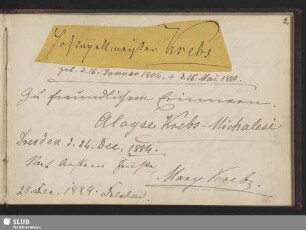 2
Hofcapellmeister Krebs
geb. d. 16. Januar 1804. + d. 16. Mai 1880.
Zu freundlichem Erinnern.
Aloyse Krebs-Michalesi
Dresden d. 24. Dec. 1884.
Mit besten Grüßen
Mary Krebs.
25. Dec. 1884. Dresden.
SLUB